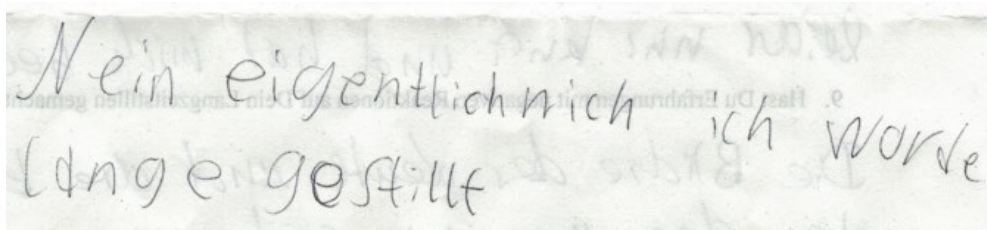 Nein eigentlichnich ich worde
lange gestillt